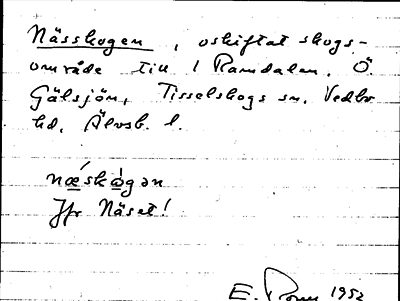 Nässkogen, oskiftat skogs-
område till 1 Ramdalen. Ö.
Gälsjön, Tisselskogs sn. Vedbo
hd. Älvsb. l.
næ´skò̱gən
Jfr Näset!
E. 1952